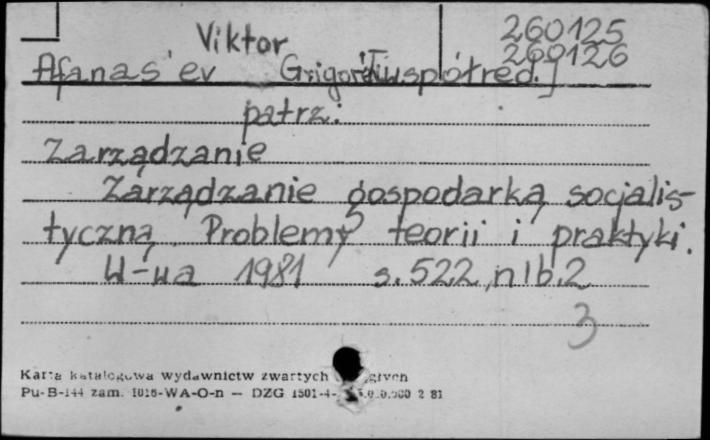 260125
Viktor
260126
Afanas'ev Grigor' [współred.]
patrz:
Zarządzanie
Zarządzanie gospodarką socjalis-
tyczną. Problemy teorii i praktyki.
W-wa 1981 s.522, nlb.2
3
Karta katalogowa wydawnictw zwartych
Pu-B-144 zam. 1016-WA-O-n — DZG 1501-4- 2 81